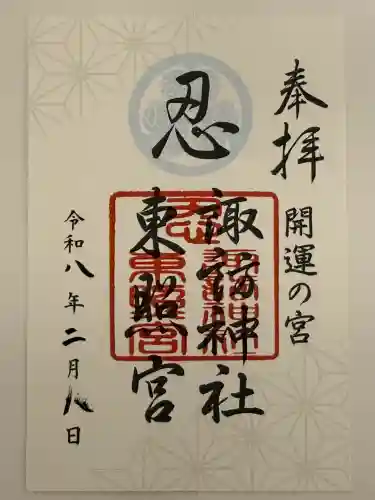 奉拝
開運の宮
忍
諏訪神社
東照宮
令和八年二月八日